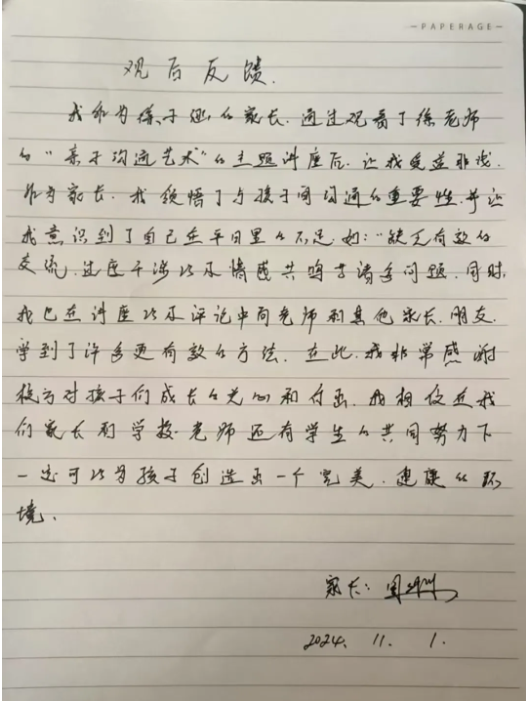 PAPERAGE
观后反馈.
我作为孩子迎的家长.通过观看了徐老师
的“亲子沟通艺术”的主题讲座后.让我受益非浅.
作为家长.我领悟了与孩子间沟通的重要性.并让
我意识到了自己在平日里的不足.如:“缺乏有效的
交流.过度干涉以及情感共鸣等诸多问题.同时,
我已在讲座以及评论中向老师和其他家长.朋友.
学到了许多更有效的方法.在此.我非常感谢
校方对孩子们成长的关心和付出.我相信在我
们家长和学校.老师还有学生的共同努力下
一定可以为孩子创造出一个完美.健康的环
境.
家长:周
2024. 11. 1.